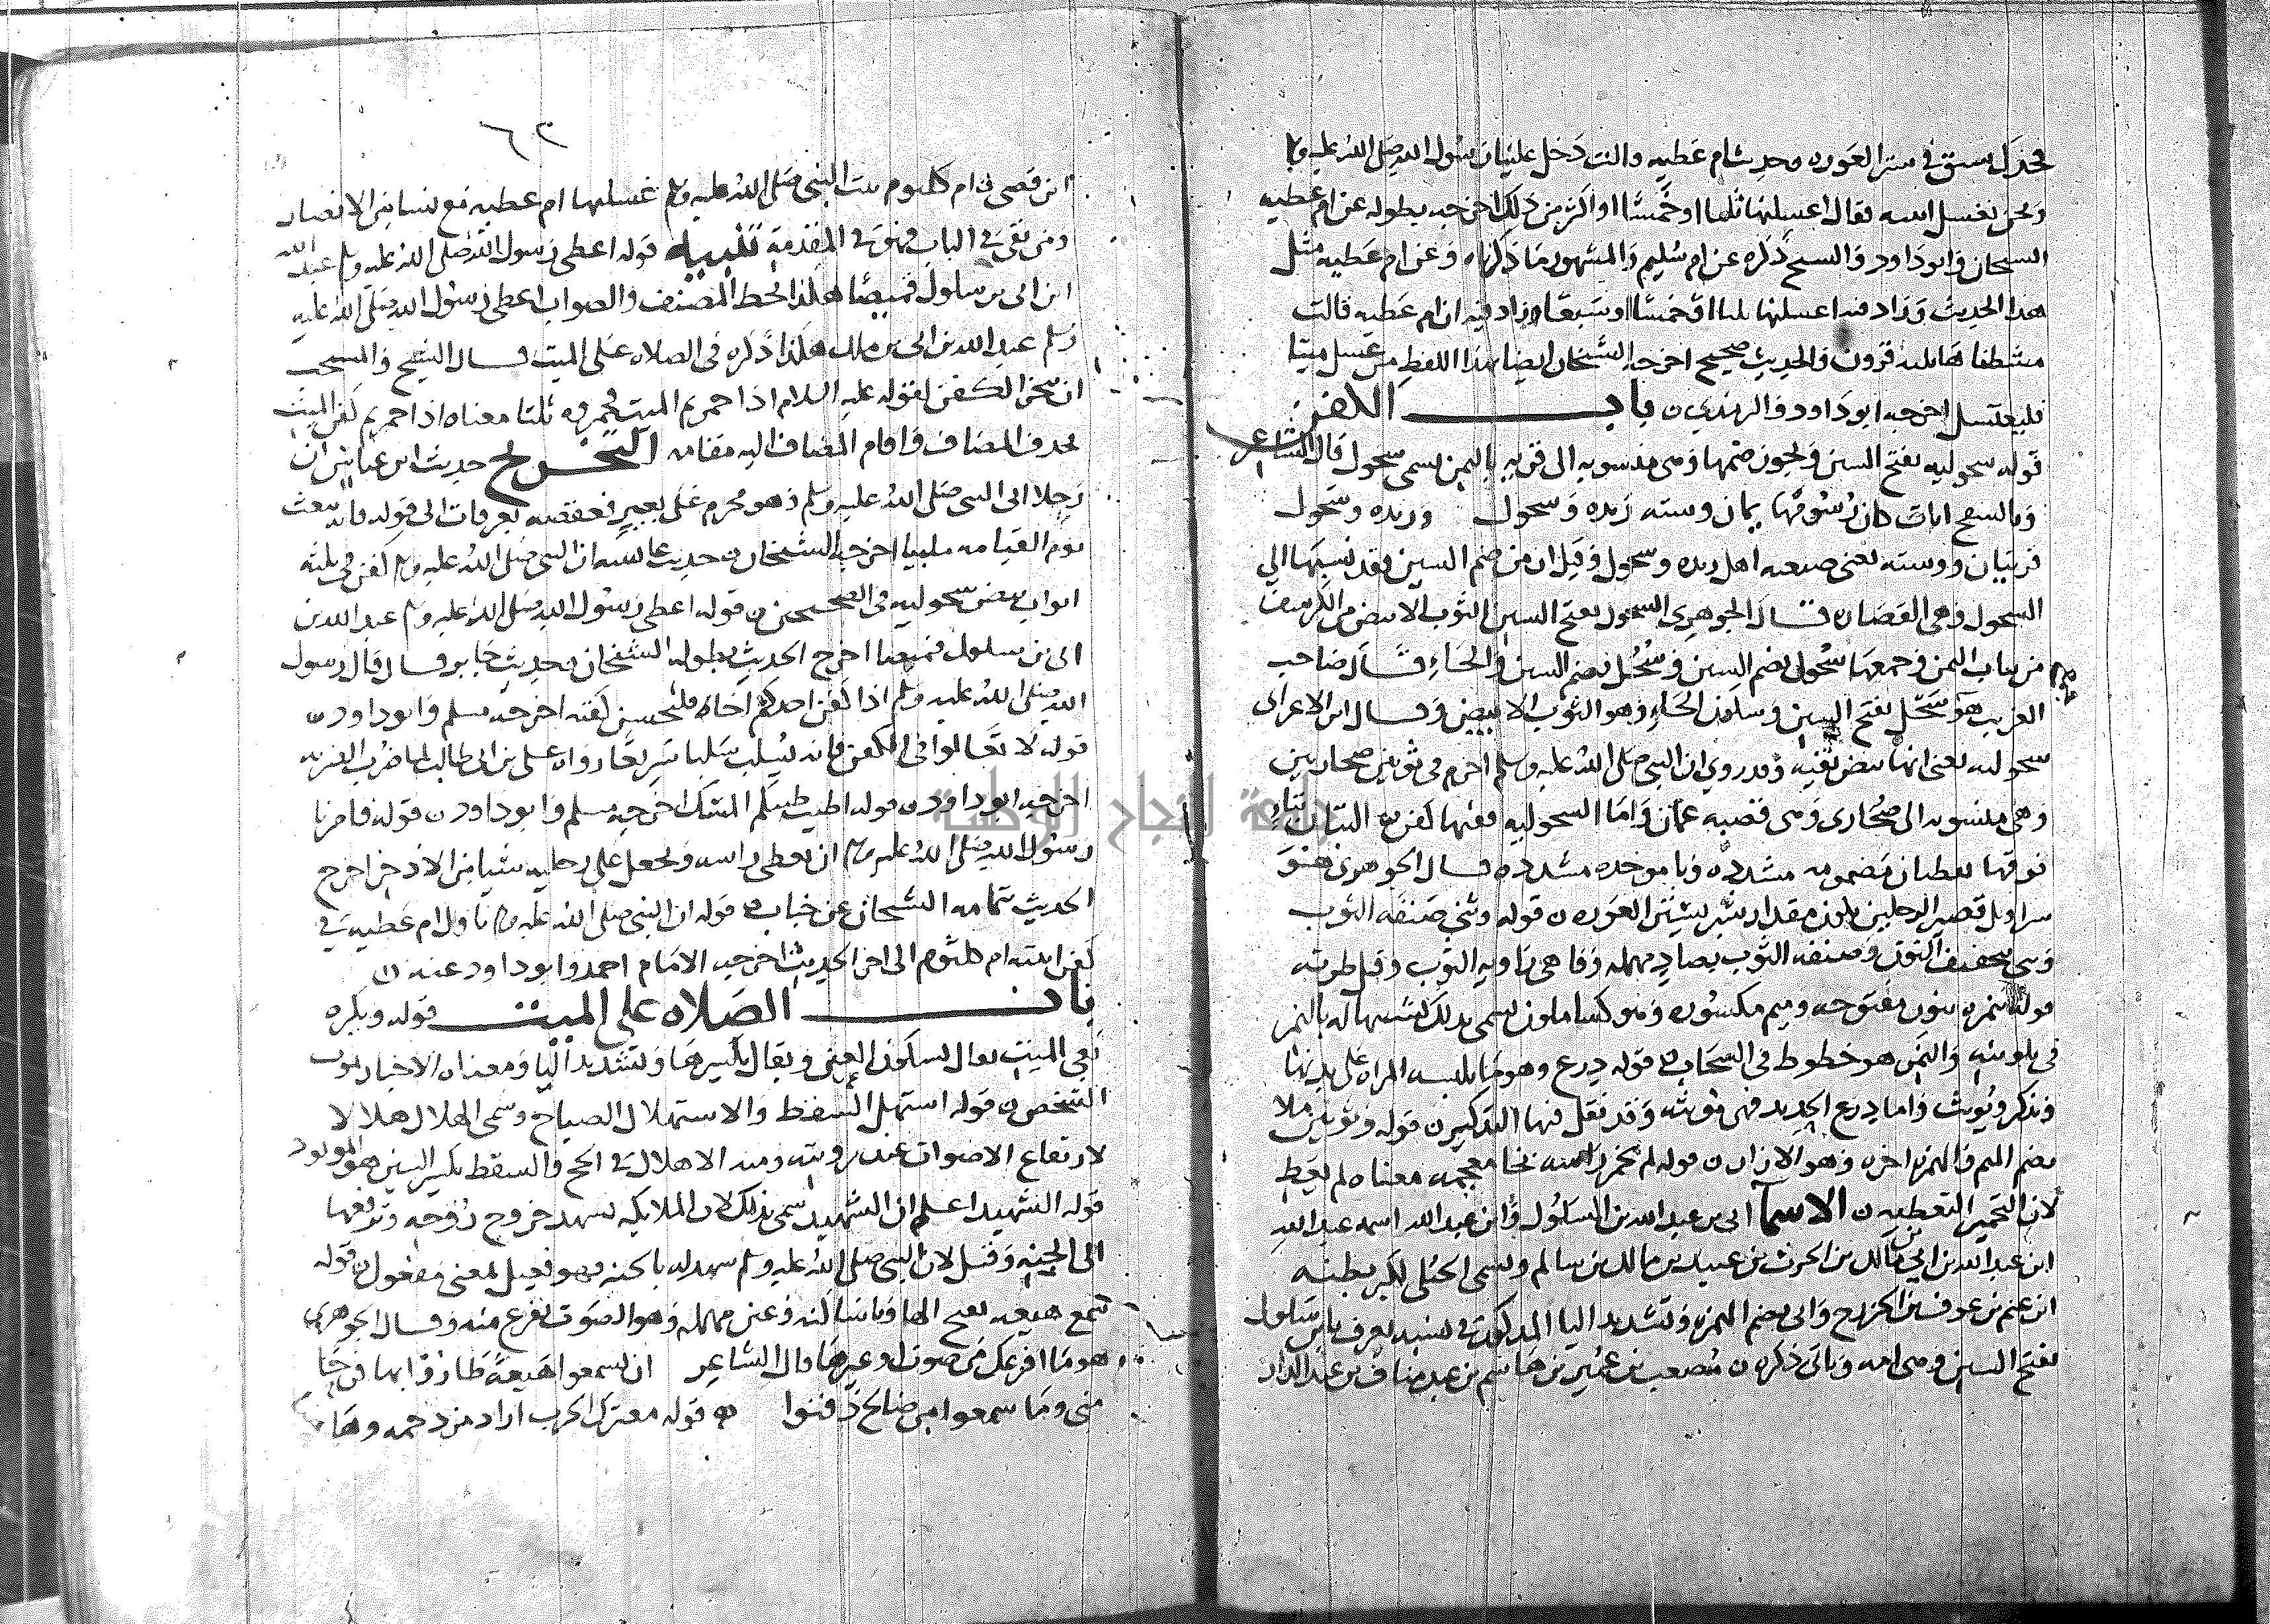 فخذك سبق في ستر العوره وحديث ام عطيه قالت دخل علينا رسول الله صلى الله عليه وسلم
ونحن نغسل ابنته فقال اغسلنها ثلثا او خمسا او اكثر من ذلك اخرجه بطوله عن ام عطيه
الشيخان وابو داود والشيخ ذكره عن ام سليم والمشهور ما ذكرناه وعن ام عطيه مثل
هذا الحديث وزاد فيه اغسلنها ثلثا او خمسا او سبعا وزاد فيه ان ام عطيه قالت
مشطناها ثلثه قرون والحديث صحيح اخرجه الشيخان ايضا بهذا اللفظ من غسل ميتا
فليغتسل اخرجه ابو داود والترمذي ن باب الكفن
قوله سحوليه بفتح السين ويجوز ضمها وهي منسوبه الى قريه باليمن يسمى سحول قال الشاعر
وبالسفح ايات كان رسومها يمان وشته ريده وسحول وريده وسحول
قريتان ووشته يعني صنعه اهل ريده وسحول وقيل ان من ضم السين فقد نسبها الى
السحول وهي القصاره قال الجوهري السحول بفتح السين الثوب الابيض من الكرسف
من ثياب اليمن وجمعها سحول بضم السين وسحل بضم السين والحاء قال صاحب
الغريب هو سحل بفتح السين وسكون الحاء وهو الثوب الابيض وقال ابن الاعرابي
سحوليه يعني انها بيض نقيه وقد روي ان النبي صلى الله عليه وسلم احرم في ثوبين صحاريين
وهي منسوبه الى صحارى وهي قصبه عمان واما السحوليه فمنها كفن التبان بتاء
فوقها نقطتان مضمومه مشدده وبا موحده مشدده قال الجوهري هو
سراويل قصير الرجلين يكون مقدار شبر يستر العوره ن قوله وثني صنفه الثوب
وهي بتخفيف النون وصنفه الثوب بصاد مهمله وفا هي زاويه الثوب وقيل طرته
قوله نمره بنون مفتوحه وميم مكسوره وهو كسا ملون يسمى بذلك تشبيها له بالنمر
في تلوينه والنمر هو خطوط في السحاب ه قوله درع وهو ما تلبسه المراه على بدنها
ويذكر ويونث واما درع الحديد فهي مونثه وقد نقل فيها التذكير ن قوله وثوبين ملا
بضم الميم والهمزه اخره وهو الازار ن قوله لم تخمر راسه بخا معجمه معناه لم يغط
لان التخمير التغطيه ن الاسما ابي بن عبد الله بن السلول وابن عبد الله اسمه عبد الله
ابن عبد الله بن ابي بن مالك بن الحرث بن عبيد بن مالك بن سالم ويسمى الحبلى لكبر بطنه
ابن غنم بن عوف بن الخزرج وابي بضم الهمزه وتشديد اليا المذكور في نسبه يعرف بابن سلول
بفتح السين وهي امه وياتي ذكره ن مصعب بن عمير بن هاشم بن عبد مناف بن عبد الدار
٦٢
ابن قصي ن ام كلثوم بنت النبي صلى الله عليه وسلم غسلتها ام عطيه مع نسا من الانصار
ومن بقي في الباب فهو في المقدمة تنبيه قوله اعطى رسول الله صلى الله عليه وسلم عبد الله
ابن ابي بن سلول قميصا هكذا بخط المصنف والصواب اعطى رسول الله صلى الله عليه
وسلم عبد الله بن ابي بن مالك هكذا ذكره في الصلاه على الميت قال الشيخ والمستحب
ان يبخر الكفن لقوله عليه السلام اذا جمرتم الميت فجمروه ثلثا معناه اذا جمرتم كفن الميت
بحذف المضاف واقام المضاف اليه مقامه التخريج حديث ابن عباس ان
رجلا اتى النبي صلى الله عليه وسلم وهو محرم على بعير فوقصه بعرفات الى قوله فانه يبعث
يوم القيامه ملبيا اخرجه الشيخان ن حديث عائشه ان النبي صلى الله عليه وسلم كفن في ثلثه
اثواب بيض سحوليه في الصحيحين ن قوله اعطى رسول الله صلى الله عليه وسلم عبد الله بن
ابي بن سلول قميصا اخرج الحديث بطوله الشيخان وحديث جابر قال قال رسول
الله صلى الله عليه وسلم اذا كفن احدكم اخاه فليحسن كفنه اخرجه مسلم وابو داود ن
قوله لا تغالوا في الكفن فانه يسلب سلبا سريعا رواه علي بن ابي طالب
اخرجه ابو داود ن قوله اطيب طيبكم المسك اخرجه مسلم وابو داود ن قوله فامرنا
رسول الله صلى الله عليه وسلم ان نغطي راسه ونجعل على رجليه شيا من الاذخر اخرج
الحديث بتمامه الشيخان عن خباب ه قوله ان النبي صلى الله عليه وسلم ناول ام عطيه في
كفن ابنته ام كلثوم الى اخر الحديث اخرجه الامام احمد وابو داود عنه ن
باب الصلاه على الميت قوله ويكره
نعي الميت يقال بسكون العين ويقال بكسرها وتشديد اليا ومعناه الاخبار بموت
الشخص ن قوله استهل السقط والاستهلال الصياح وسمي الهلال هلالا
لارتفاع الاصوات عند رويته ومنه الاهلال في الحج والسقط بكسر السين هو المولود
قوله الشهيد اعلم ان الشهيد سمي بذلك لان الملايكه تشهد خروج روحه وترفعها
الى الجنه وقيل لان النبي صلى الله عليه وسلم شهد له بالجنه فهو فعيل بمعنى مفعول ن قوله
سمع هيعه بفتح الها ويا ساكنه وعين مهمله وهو الصوت يفزع منه وقال الجوهري
هو ما افزعك من صوت او غيرها قال الشاعر ان يسمعوا هيعة طاروا بها فرحا
مني وما سمعوا من صالح دفنوا ه قوله معترك الحرب اراد مزدحمه وها